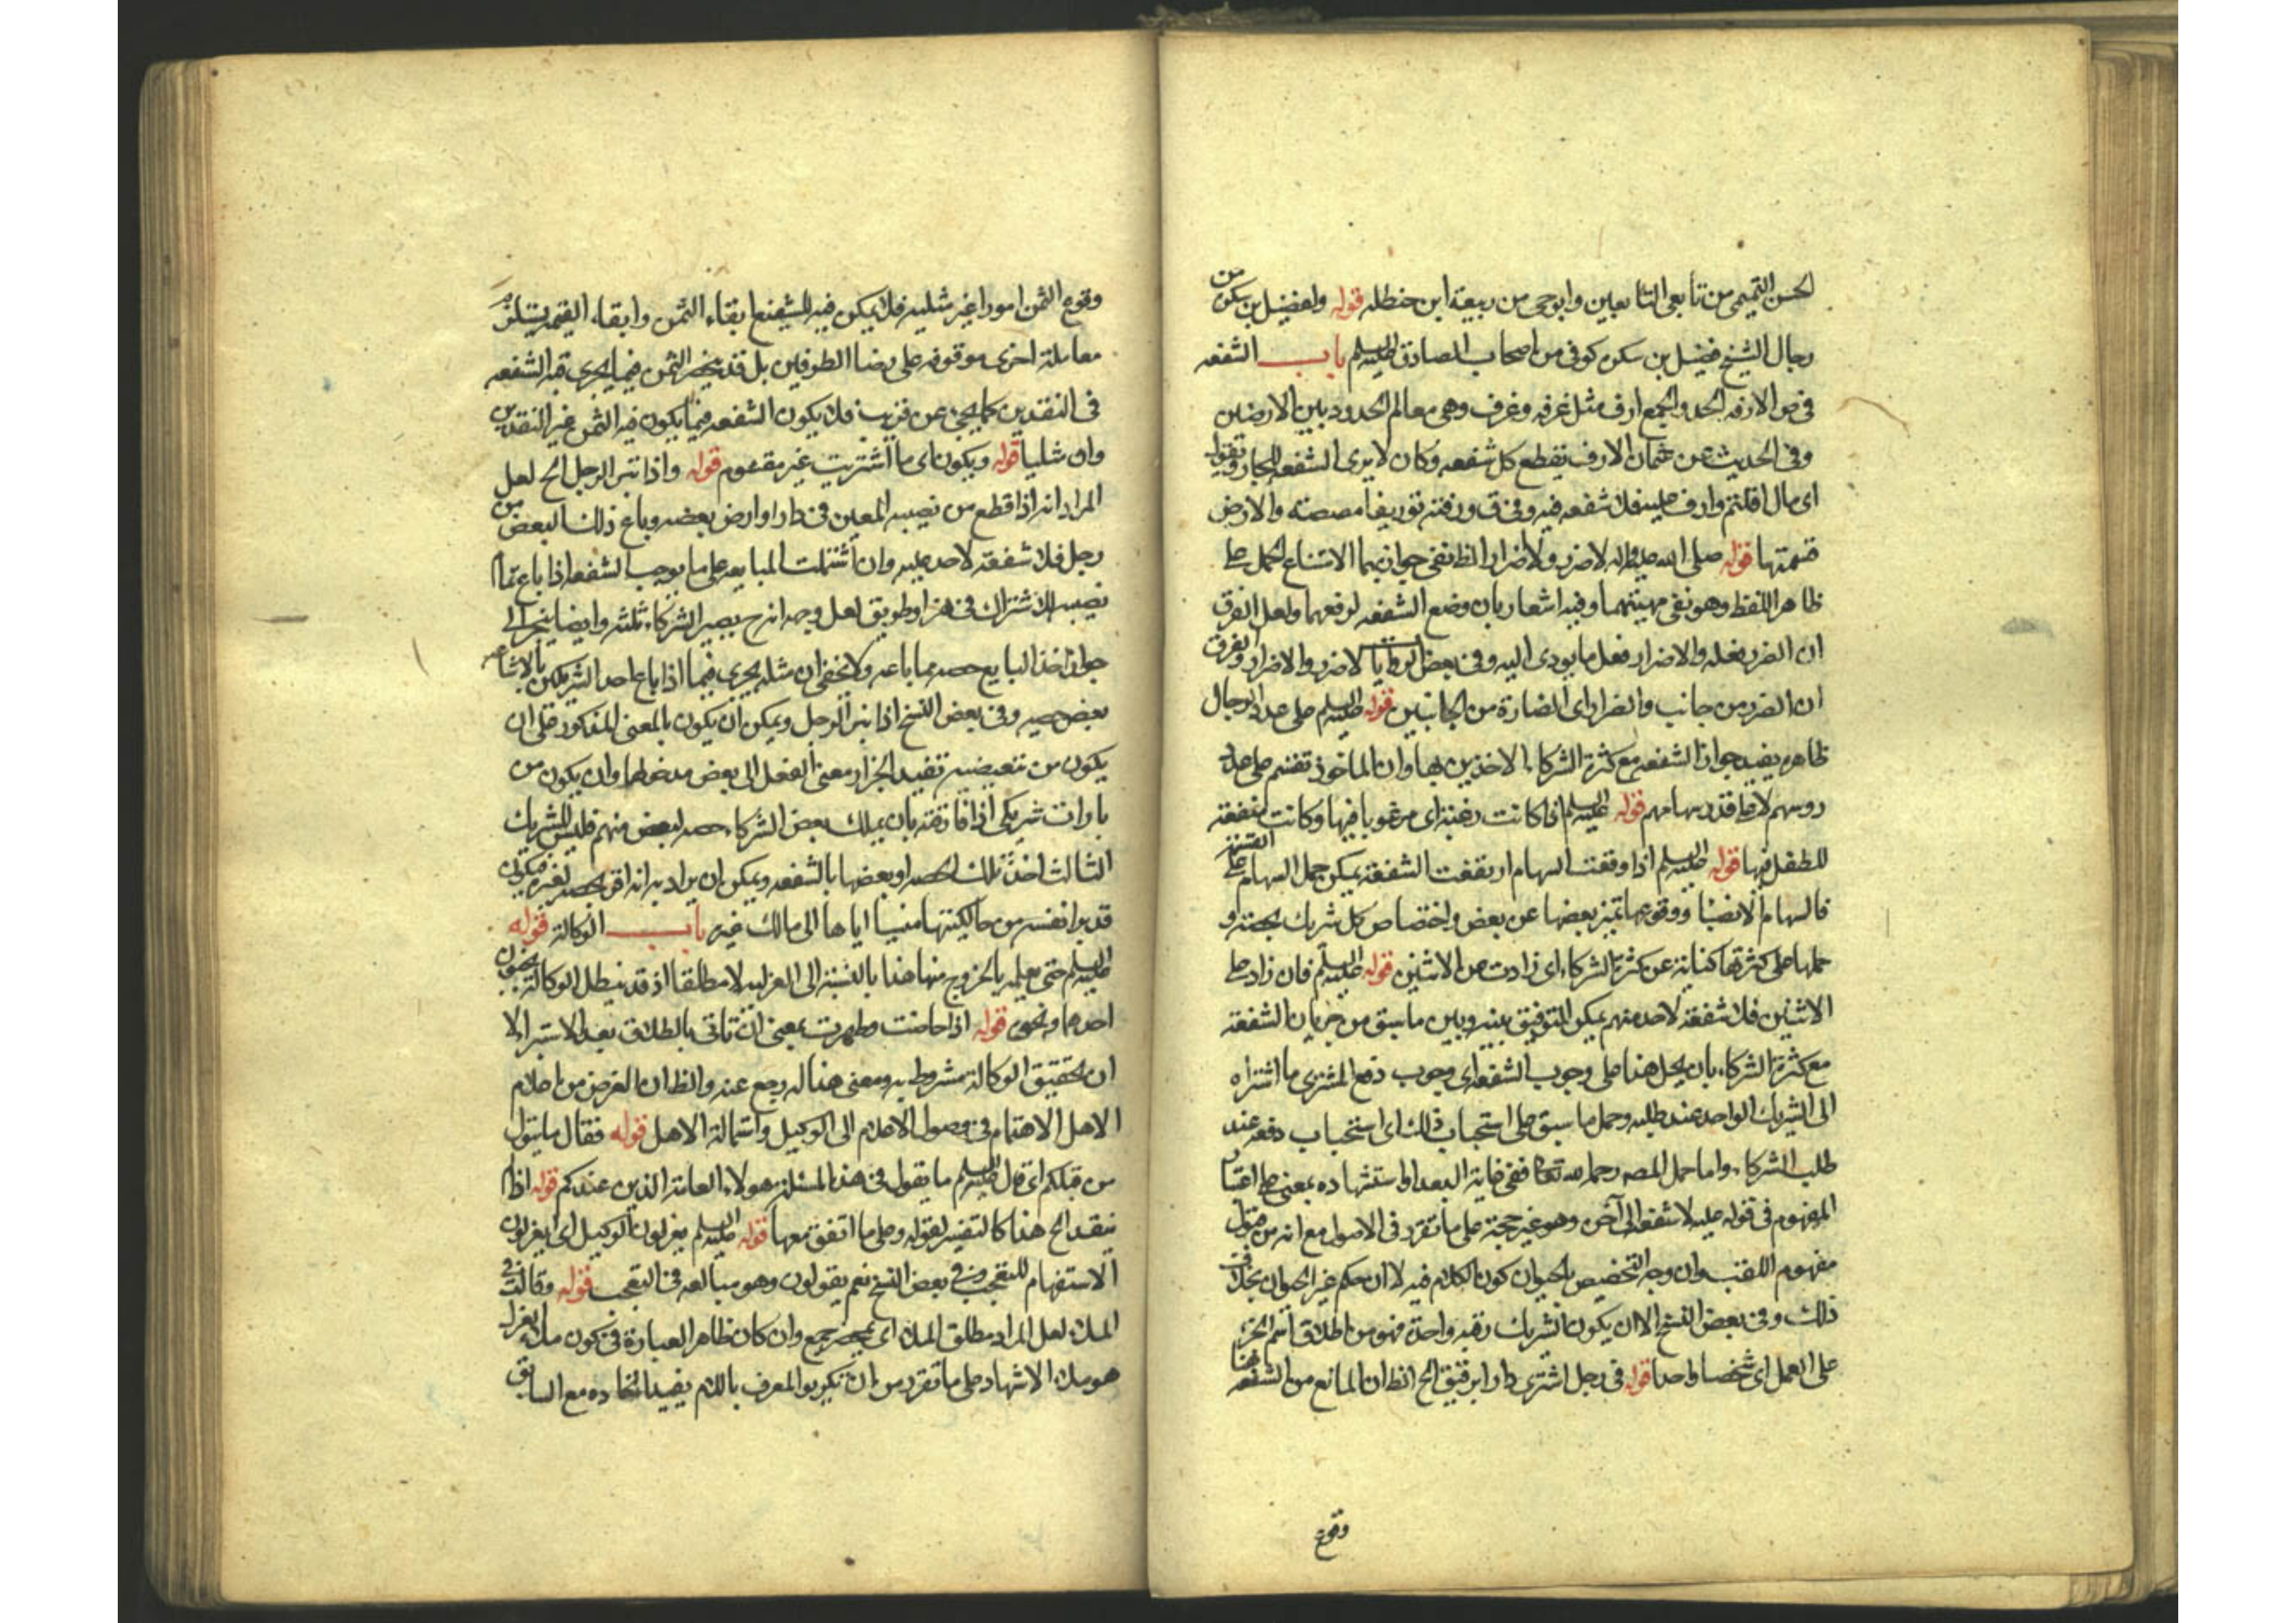 الحسن التميمى من تابعى التابعين وابوحى من ربيعة ابن حنظله قوله والفضيل بن سكن من
رجال الشيخ فضيل بن سكن كوفى من اصحاب الصادق عليه السلم باب الشفعه
فى ض الارفه الحد والجمع ارف مثل غرفه وغرف وهى معالم الحدود بين الارضين
وفى الحديث عن عثمان الارف يقطع كل شفعه وكان لايرى الشفعه للجار ويقول
اى مال اقتسم وارف عليه فلا شفعه فيه وفى ق ورفته توريفا مصصته والارض
قسمتها قوله صلى الله عليه واله لاضرر ولاضرار الظ نفى جوازهما لامتناع الحمل على
ظاهر اللفظ وهو نفى مهيتهما وفيه اشعار بان وضع الشفعه لرفعهما ولعل الفرق
ان الضرر فعله والاضرار فعل ما يودى اليه وفى بعض الروايات لاضرر والاضرار والفرق
ان الضرر من جانب والضرار اى المضارة من الجانبين قوله عليه السلم على عدد الرجال
ظاهره يفيد جواز الشفعه مع كثرة الشركاء الاخذين بها وان الماخوذ تقسم على عدد
روسهم لا على قدر سهامهم قوله عليه السلم اذا كانت رغبة اى مرغوبا فيها وكانت منفعة
للطفل فيها قوله عليه السلم اذا وقعت السهام ارتفعت الشفعة يمكن حمل السهام على القسمة
فالسهام الانصبا ووقوعها تميز بعضها عن بعض واختصاص كل شريك بحصته و
حملها على كثرتها كناية عن كثرة الشركاء اى زادت عن الاثنين قوله عليه السلم فان زاد على
الاثنين فلا شفعة لاحد منهم يمكن التوفيق بينه وبين ما سبق من جريان الشفعة
مع كثرة الشركاء بان يحمل هذا على وجوب الشفعه اى وجوب دفع المشترى ما اشتراه
الى الشريك الواحد عند طلبه وحمل ما سبق على استحباب ذلك اى استحباب دفعه عند
طلب الشركاء واما حمل المصه رحمه الله تعالى ففى غاية البعد واستشهاده بمعنى على اعتبار
المفهوم فى قوله عليه لاشفعه الى آخره وهو غير حجة على ما تقرر فى الاصول مع انه من قبيل
مفهوم اللقب وان وجه التخصيص بالحيوان كون الكلام فيه لا ان حكم غير الحيوان بخلاف
ذلك وفى بعض النسخ الا ان يكون الشريك رقبه واحدة فهو من اطلاق اسم الجزء
على العمل اى شخصا واحدا قوله فى رجل اشترى دارا برقيق الخ الظ ان المانع من الشفعه هنا
وقوع
وقوع الثمن امورا غير مثليه فلا يمكن فيه للشفيع ابقاء الثمن وابقاء القيمه يستلزم
معاملة اخرى موقوفه على رضا الطرفين بل قد ينحصر الثمن فيما يجرى فيه الشفعه
فى النقدين كما يجئ عن قريب فلا يكون الشفعه فيما يكون فيه الثمن غير النقدين
وان مثليا قوله ويكون اى ما اشتريت غير مقسوم قوله واذا تبر الرجل الخ لعل
المراد انه اذا قطع من نصيبه المعين فى دار او ارض بعضه وباع ذلك البعض من
رجل فلا شفعة لاحد عليه وان اشتملت المبايعه على ما يوجب الشفعه اذا باع تمام
نصيبه كالاشتراك فى نهر او طريق لعل وجهه انه ح يصير الشركاء ثلثه وايضا ينجر الى
جواز اخذ البايع حصه مما باعه ولايخفى ان مثله يجرى فيما اذا باع احد الشريكين بالاشاعه
بعض حصه وفى بعض النسخ اذا تبر الرجل ويمكن ان يكون بالمعنى المذكور على ان
يكون من تبعيضيه تفيد انجرار معنى الفعل الى بعض مدخولها وان يكون من
بارات شريكى اذا فارقته بان يملك بعض الشركاء حصه لبعض منهم فليس للشريك
الثالث اخذ تلك الحصه او بعضها بالشفعه ويمكن ان يراد به انه اقر بحصه لغيره فيكون
قد برا نفسه من مالكيتها منسبا اياها الى مالك غيره باب الوكالة قوله
عليه السلم حتى يعلمه بالخروج منها هذا بالنسبة الى العزل لا مطلقا اذ قد يبطل الوكالة بجنون
احدهما ونحوه قوله اذا حاضت وطهرت بمعنى ان تاتى بالطلاق بعد الاستبراء لا
ان تحقيق الوكالة مشروط به ومعنى هذا له رجع عنه والظ ان الغرض من اعلام
الاهل الاهتمام فى وصول الاعلام الى الوكيل واستمالة الاهل قوله فقال ما يقول
من قبلكم اى قال عليه السلم ما يقول فى هذه المسئلة هولاء العامة الذين عندكم قوله اذا لم
ينقد الخ هذا كالتفسير لقوله وعلى ما اتفق معها قوله عليه السلم يعزلون الوكيل اى ايعزلون
الاستفهام للتعجب وفى بعض النسخ نعم يقولون وهو مبالغه فى التعجب قوله وقالت فى
الملاء لعل المراد مطلق الملاء اى بمحضر جمع وان كان ظاهر العبارة فى كون ملاء العزل
هو ملاء الاشهاد على ما تقرر من ان تكرير المعرف باللام يفيد اتحاده مع السابق